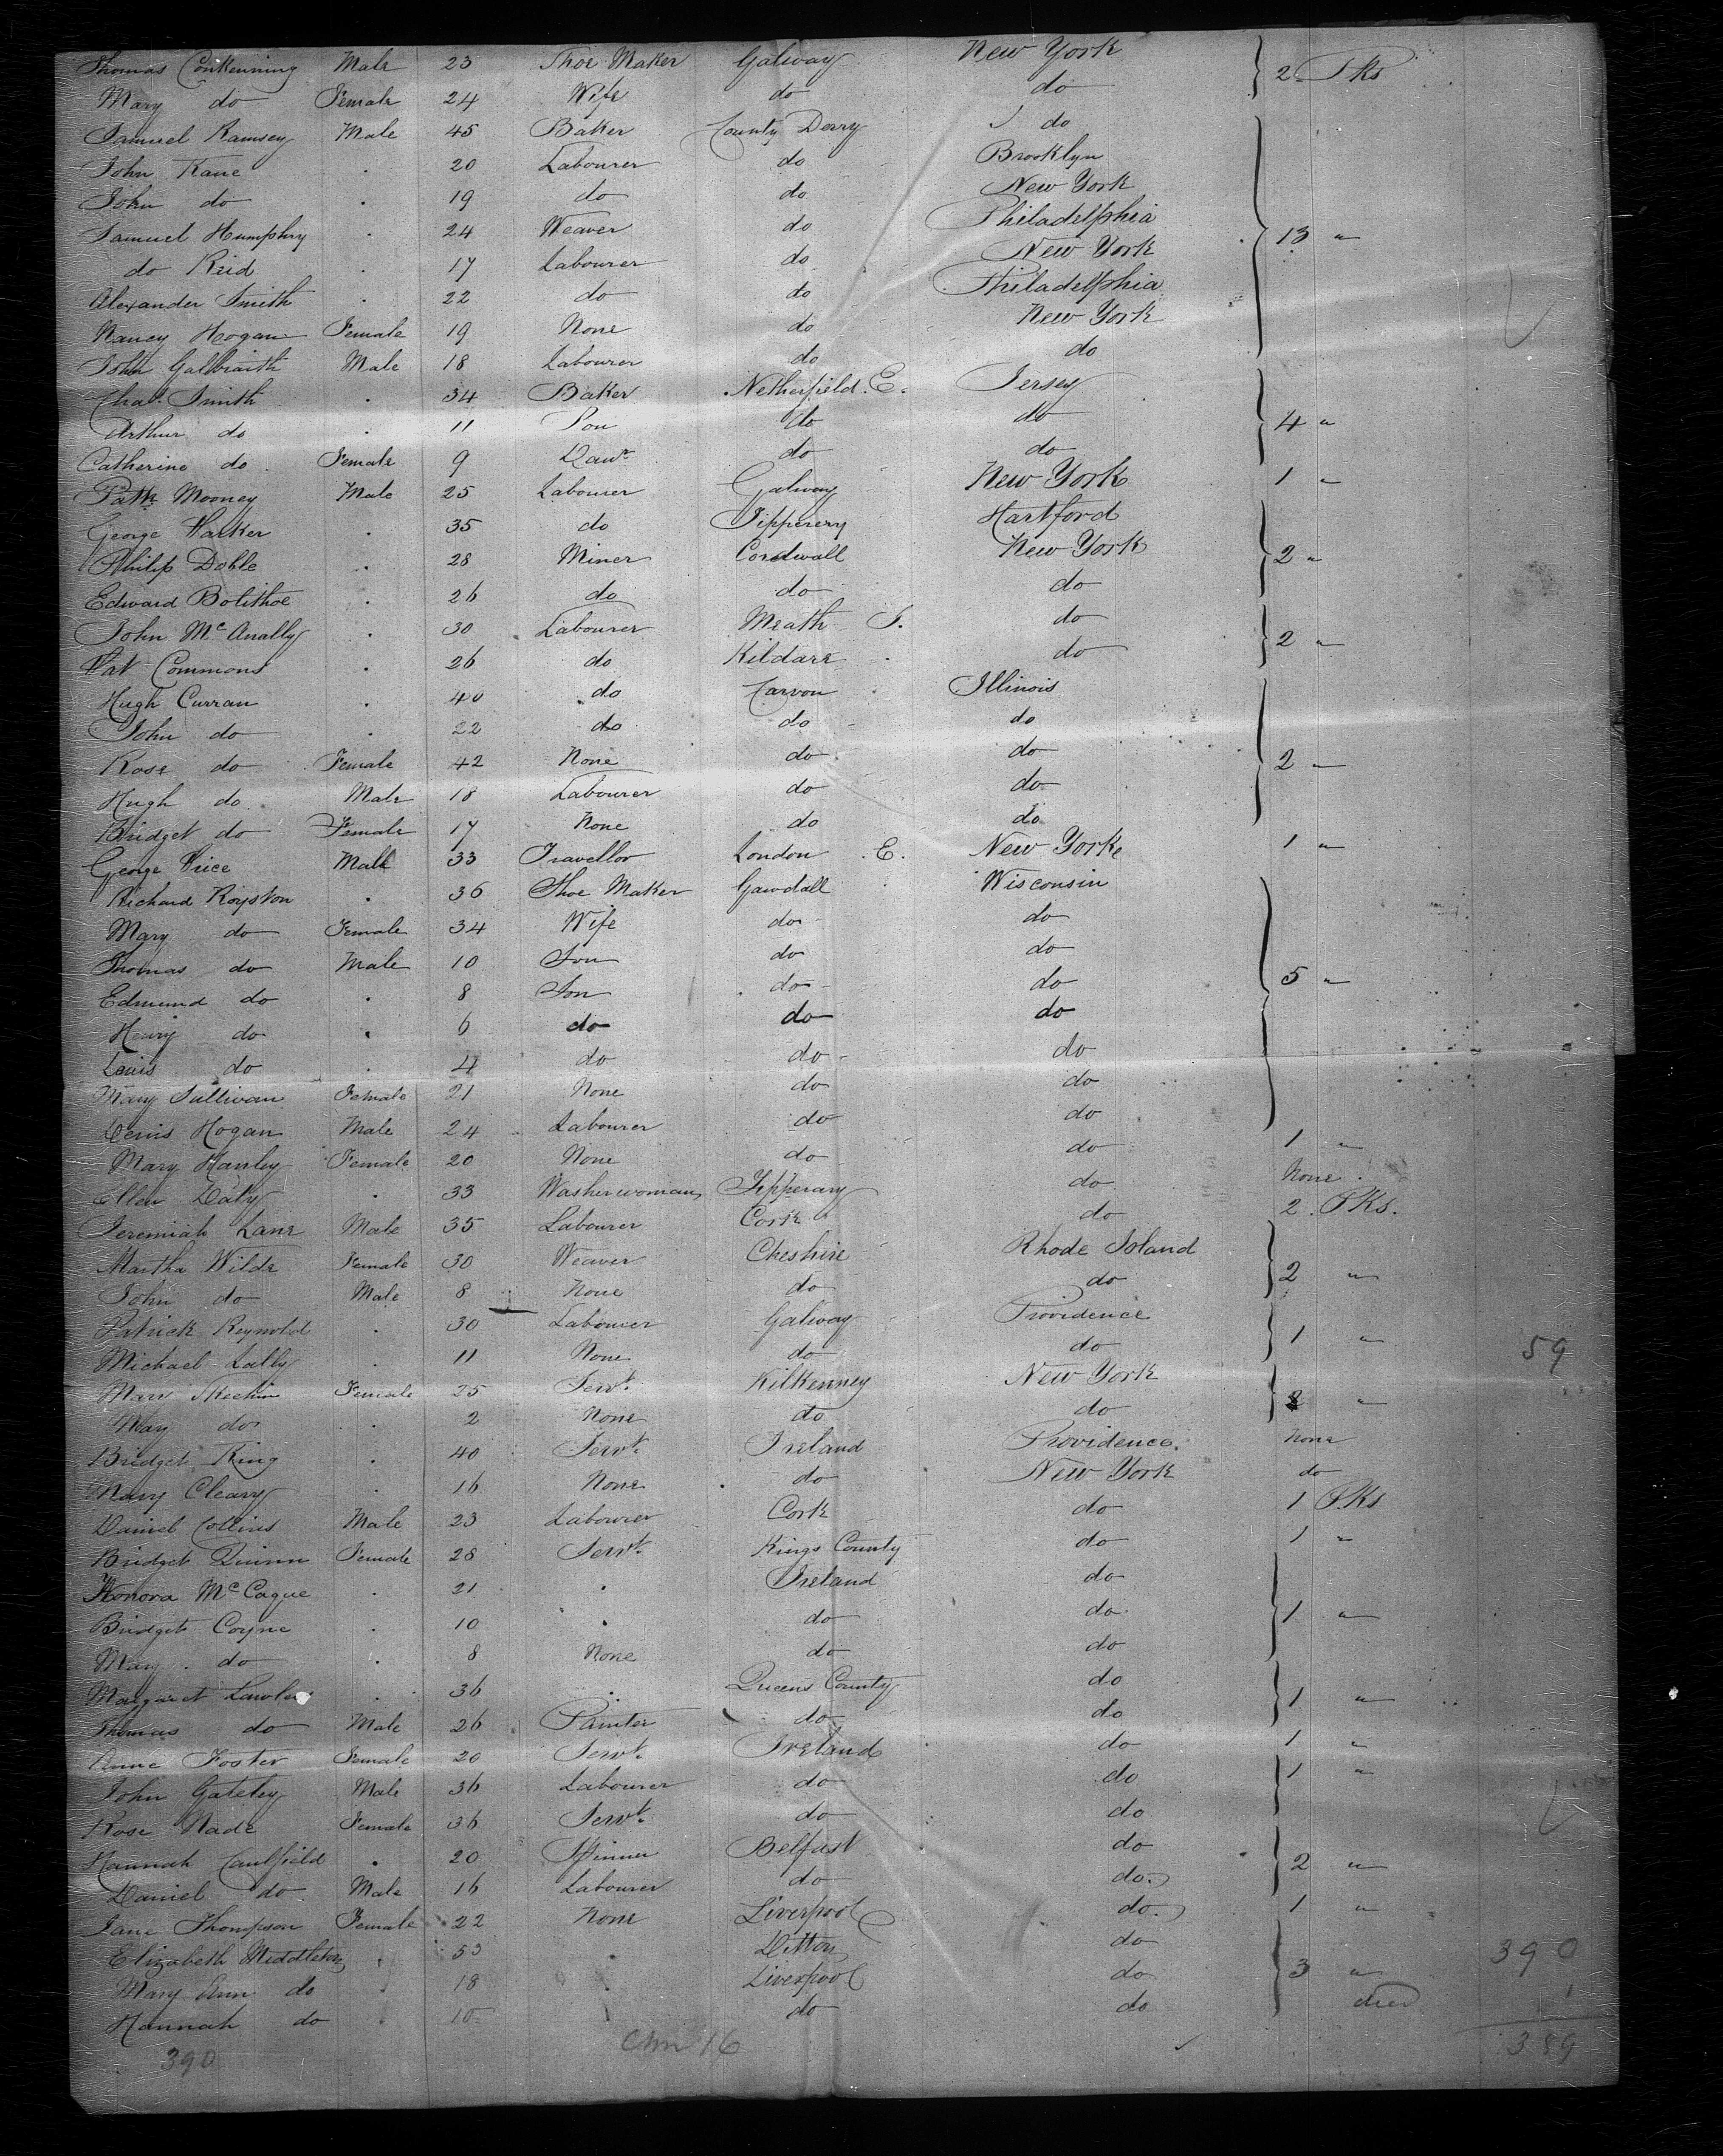 Thomas Male 23 Shoe Maker Galway New York 2 Pks
Mary do Female 24 Wife do do
Samuel Ramsey Male 45 Baker County Derry do
John Kane 20 Labourer do Brooklyn
John do 19 do do New York
Samuel Humphry 24 Weaver do Philadelphia 13 "
do Reid 17 Labourer do New York
Alexander Smith 22 do do Philadelphia
Nancy Hogan Female 19 None do New York
John Galbraith Male 18 Labourer do do
Chas. Smith 34 Baker Netherfield. E. Jersey
Arthur do 11 Son do do 4 "
Catherine do Female 9 Dawr do do
Patk Mooney Male 25 Labourer Galway New York 1 "
George Harker 35 do Tipperery Hartford
Philip Doble 28 Miner Cornwall New York 2 "
Edward Bolithoe 26 do do do
John McAnally 30 Labourer Meath I. do 2 "
Pat Commons 26 do Kildare do
Hugh Curran 40 do Carvon Illinois
John do 22 do do do
Rose do Female 42 None do do 2 "
Hugh do Male 18 Labourer do do
Bridget do Female 17 None do do
George Price Male 33 Travellor London E. New York 1 "
Richard Royston 36 Shoe Maker Gawdall Wisconsin
Mary do Female 34 Wife do do
Thomas do Male 10 Son do do
Edmund do 8 Son do do 5 "
Henry do 6 do do do
Louis do 4 do do do
Mary Sullivan Female 21 None do do
Denis Hogan Male 24 Labourer do do
Mary Hanley Female 20 None do do 1 "
Ellen Daty 33 Washerwoman Tipperary do None.
Jeremiah Lane Male 35 Labourer Cork do 2. Pks.
Martha Wilde Female 30 Weaver Cheshire Rhode Island
John do Male 8 None do do 2 "
Patrick Reynold 30 Labourer Galway Providence
Michael Lally 11 None do do 1 " 59
Mary Female 25 Servt. Kilkenney New York
Mary do 2 None do do 2 "
Bridget King 40 Servt. Ireland Providence. None
Mary Cleary 16 None do New York do
Daniel Collins Male 23 Labourer Cork do 1 Pks
Bridget Quinn Female 28 Servt. Kings County do 1 "
Honora McCague 21 Ireland do
Bridget Coyne 10 do do 1 "
Mary do 8 None do do
Margaret Lawler 36 Queens County do 1 "
Thomas do Male 26 Painter do do
Anne Foster Female 20 Servt. Ireland do 1 "
John Gateley Male 36 Labourer do do 1 "
Rose Nade Female 36 Servt. do do
Hannah Caulfield 20 Spinner Belfast do 2 "
Daniel do Male 16 Labourer do do
Jane Thompson Female 22 None Liverpool do 1 "
Elizabeth Middleton 53 Ditton do 390
Mary Ann do 18 Liverpool do 3 "
Hannah do 10 do do died 1
390 16 389